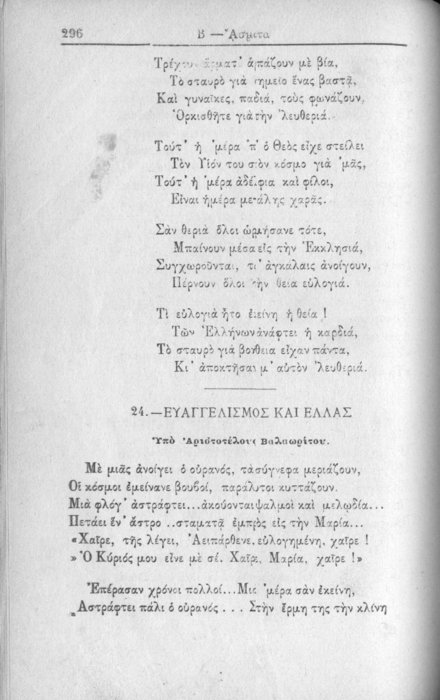 296 Β —ᾌσματα
Τρέχουν ἅρματ᾽ ἁπάζουν μὲ βία,
Τὸ σταυρὸ γιὰ σημεῖο ἕνας βαστᾷ,
Καὶ γυναῖκες, παδιά, τοὺς φωνάζουν,
Ὁρκισθῆτε γιὰ τὴν ᾽λευθεριά.
Τούτ᾽ ἡ ᾽μέρα ᾽π᾽ ὁ Θεὸς εἶχε στείλει
Τὸν Υἱόν του στὸν κόσμο γιὰ ᾽μᾶς,
Τούτ᾽ ἡ ᾽μέρα ἀδέρφια καὶ φίλοι,
Εἶναι ἡμέρα μεγάλης χαρᾶς.
Σὰν θεριὰ ὅλοι ὡρμήσανε τότε,
Μπαίνουν μέσα εἰς τὴν Ἐκκλησιά,
Συγχωροῦνται, τσ᾽ ἀγκάλαις ἀνοίγουν,
Πέρνουν ὅλοι τὴν θεια εὐλογιά.
Τὶ εὐλογιὰ ἦτο ἐκείνη ἡ θεία !
Τῶν Ἑλλήνων ἀνάφτει ἡ καρδιά,
Τὸ σταυρὸ γιὰ βοήθεια εἶχαν πάντα,
Κι᾽ ἀποκτῆσαν μ᾽ αὐτὸν ᾽λευθεριά.
24.—ΕΥΑΓΓΕΛΙΣΜΟΣ ΚΑΙ ΕΛΛΑΣ
Ὑπὸ Ἀριστοτέλους Βαλαωρίτου.
Μὲ μιᾶς ἀνοίγει ὁ οὐρανός, τὰ σύγνεφα μεριάζουν,
Οἱ κόσμοι ἐμείνανε βουβοί, παράλυτοι κυττάζουν.
Μιὰ φλόγ᾽ ἀστράφτει...ἀκούονται ψαλμοὶ καὶ μελῳδία...
Πετάει ἕν᾽ ἄστρο ..σταματᾷ ἐμπρὸς εἰς τὴν Μαρία...
«Χαῖρε, τῆς λέγει, Ἀειπάρθενε, εὐλογημένη, χαῖρε !
» Ὁ Κύριός μου εἶνε μὲ σέ. Χαῖρε, Μαρία, χαῖρε !»
Ἐπέρασαν χρόνοι πολλοί...Μιὰ ᾽μέρα σὰν ἐκείνη,
Ἀστράφτει πάλι ὁ οὐρανός . . . Στὴν ἔρμη της τὴν κλίνη